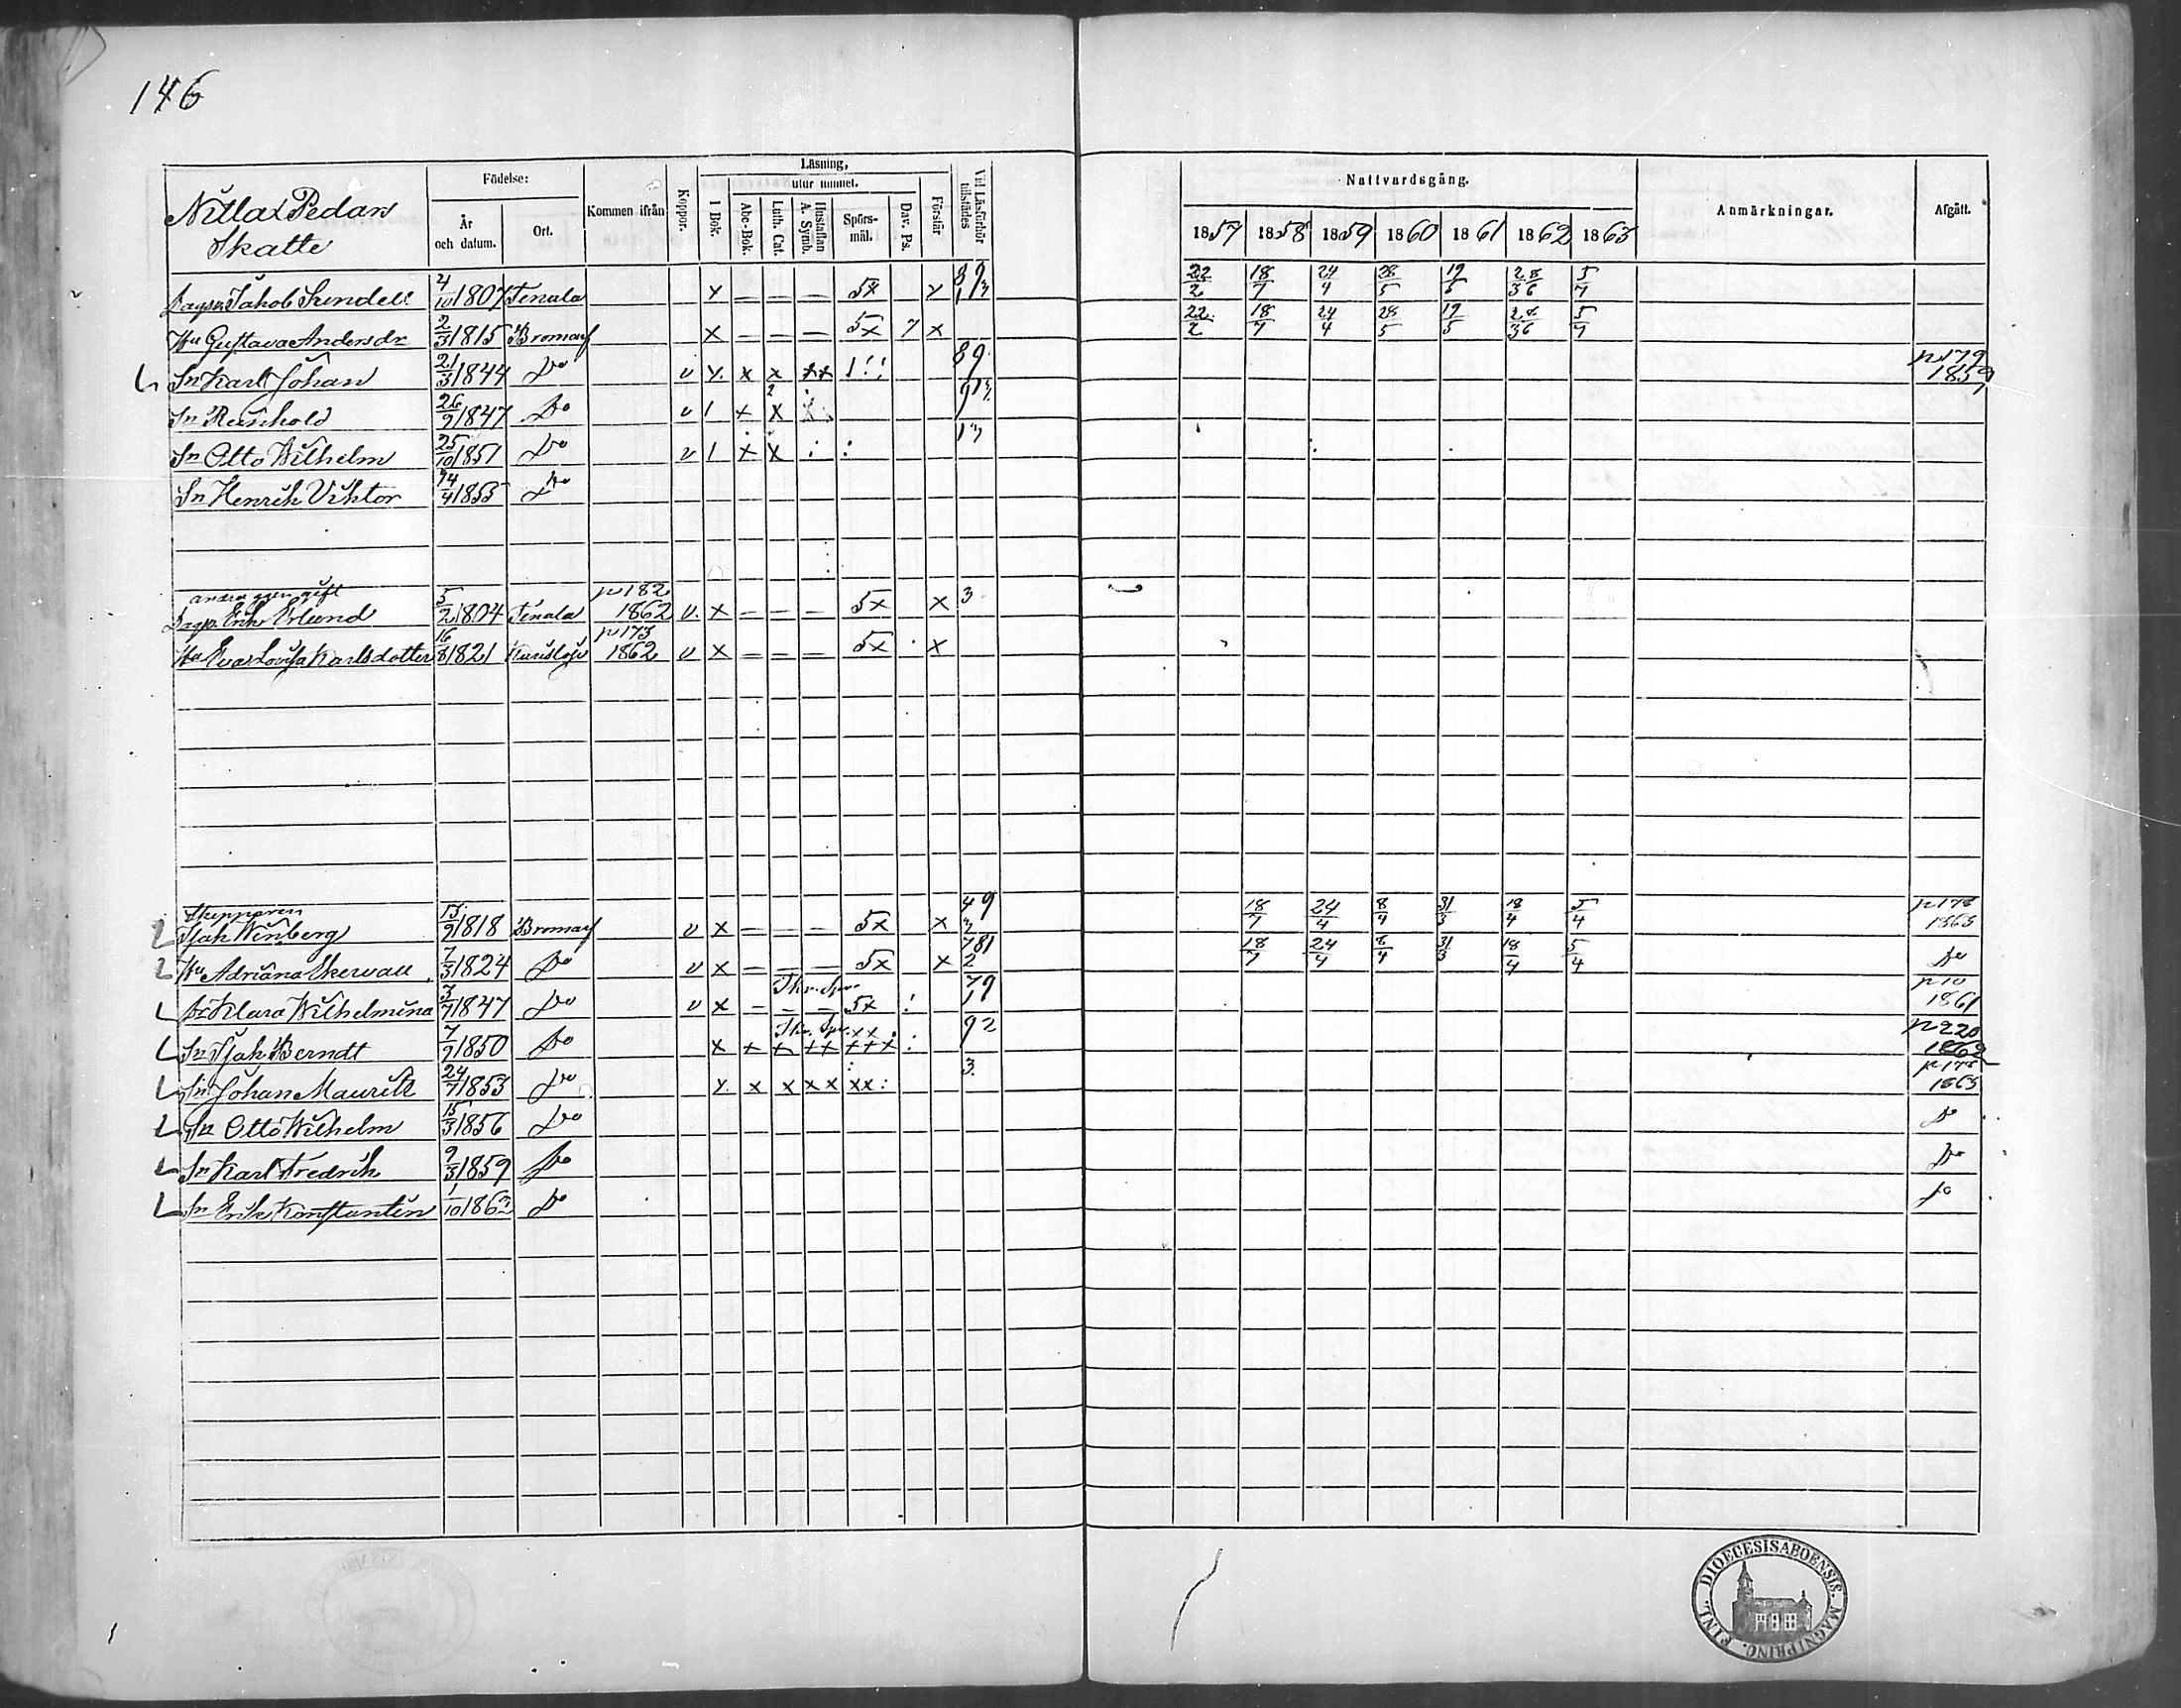 146
Nitlax Pedars
Skatte
Födelse:
År och datum.
Ort.
Kommen ifrån
Koppor.
Läsning,
I Bok.
utur minnet.
Abc-Bok.
Luth. Cat.
Hustaflan A. Symb.
Spörs-mål.
Dav. Ps.
Förstår
Vid Läsförhör tillstädes
Nattvardsgång.
1857 1858 1859 1860 1861 1862 1863
Anmärkningar.
Afgått.
Jakob Sundell 4/10 1807 Tenala x — — — 5x x 22/2 18/7 24/4 28/5 19/5 5/7
Hu Gustava Andersdr 2/3 1815 Bromarf x — — — 5x 7 x 22/2 18/7 24/4 28/5 19/5 5/7
Sn Karl Johan 21/3 1844 Do v x x x xx 89 p 179 1859
Sn Reinhold 26/9 1847 Do v 1 x x
Sn Otto Wilhelm 25/10 1851 Do v 1 x x 13
Sn Henrik Viktor 14/4 1855 Do
andra ggen gift
Erik Erlund 5/2 1804 Tenala p 182 1862 v. x — — — 5x x 3
Hu Eva Lovisa Karlsdotter 16/8 1821 Karislojo p 173 1862 v x — — — 5x x
Skepparen
Isak Winberg 13/9 1818 Bromarf v x — — — 5x x 49 3 18/7 24/4 8/4 31/3 18/4 5/4 p 178 1863
Hu Adriana Ekervall 7/3 1824 Do v x — — — 5x x 781 2 18/7 24/4 8/4 31/3 18/4 5/4 Do
Dr Klara Wilhelmina 3/7 1847 Do v x — — — 5x 79 p 10 1861
Sn Isak Berndt 7/9 1850 Do x x x xx xxx 92 p 220 1862
Sn Johan Mauritz 24/7 1853 Do x x x xx xx: 3. p 178 1863
Sn Otto Wilhelm 15/3 1856 Do Do
Sn Karl Fredrik 9/3 1859 Do Do
Sn Erik Konstantin 1/10 1862 Do Do
FINL. DIOECESIS ABOENSIS. MAGNI PRINC.